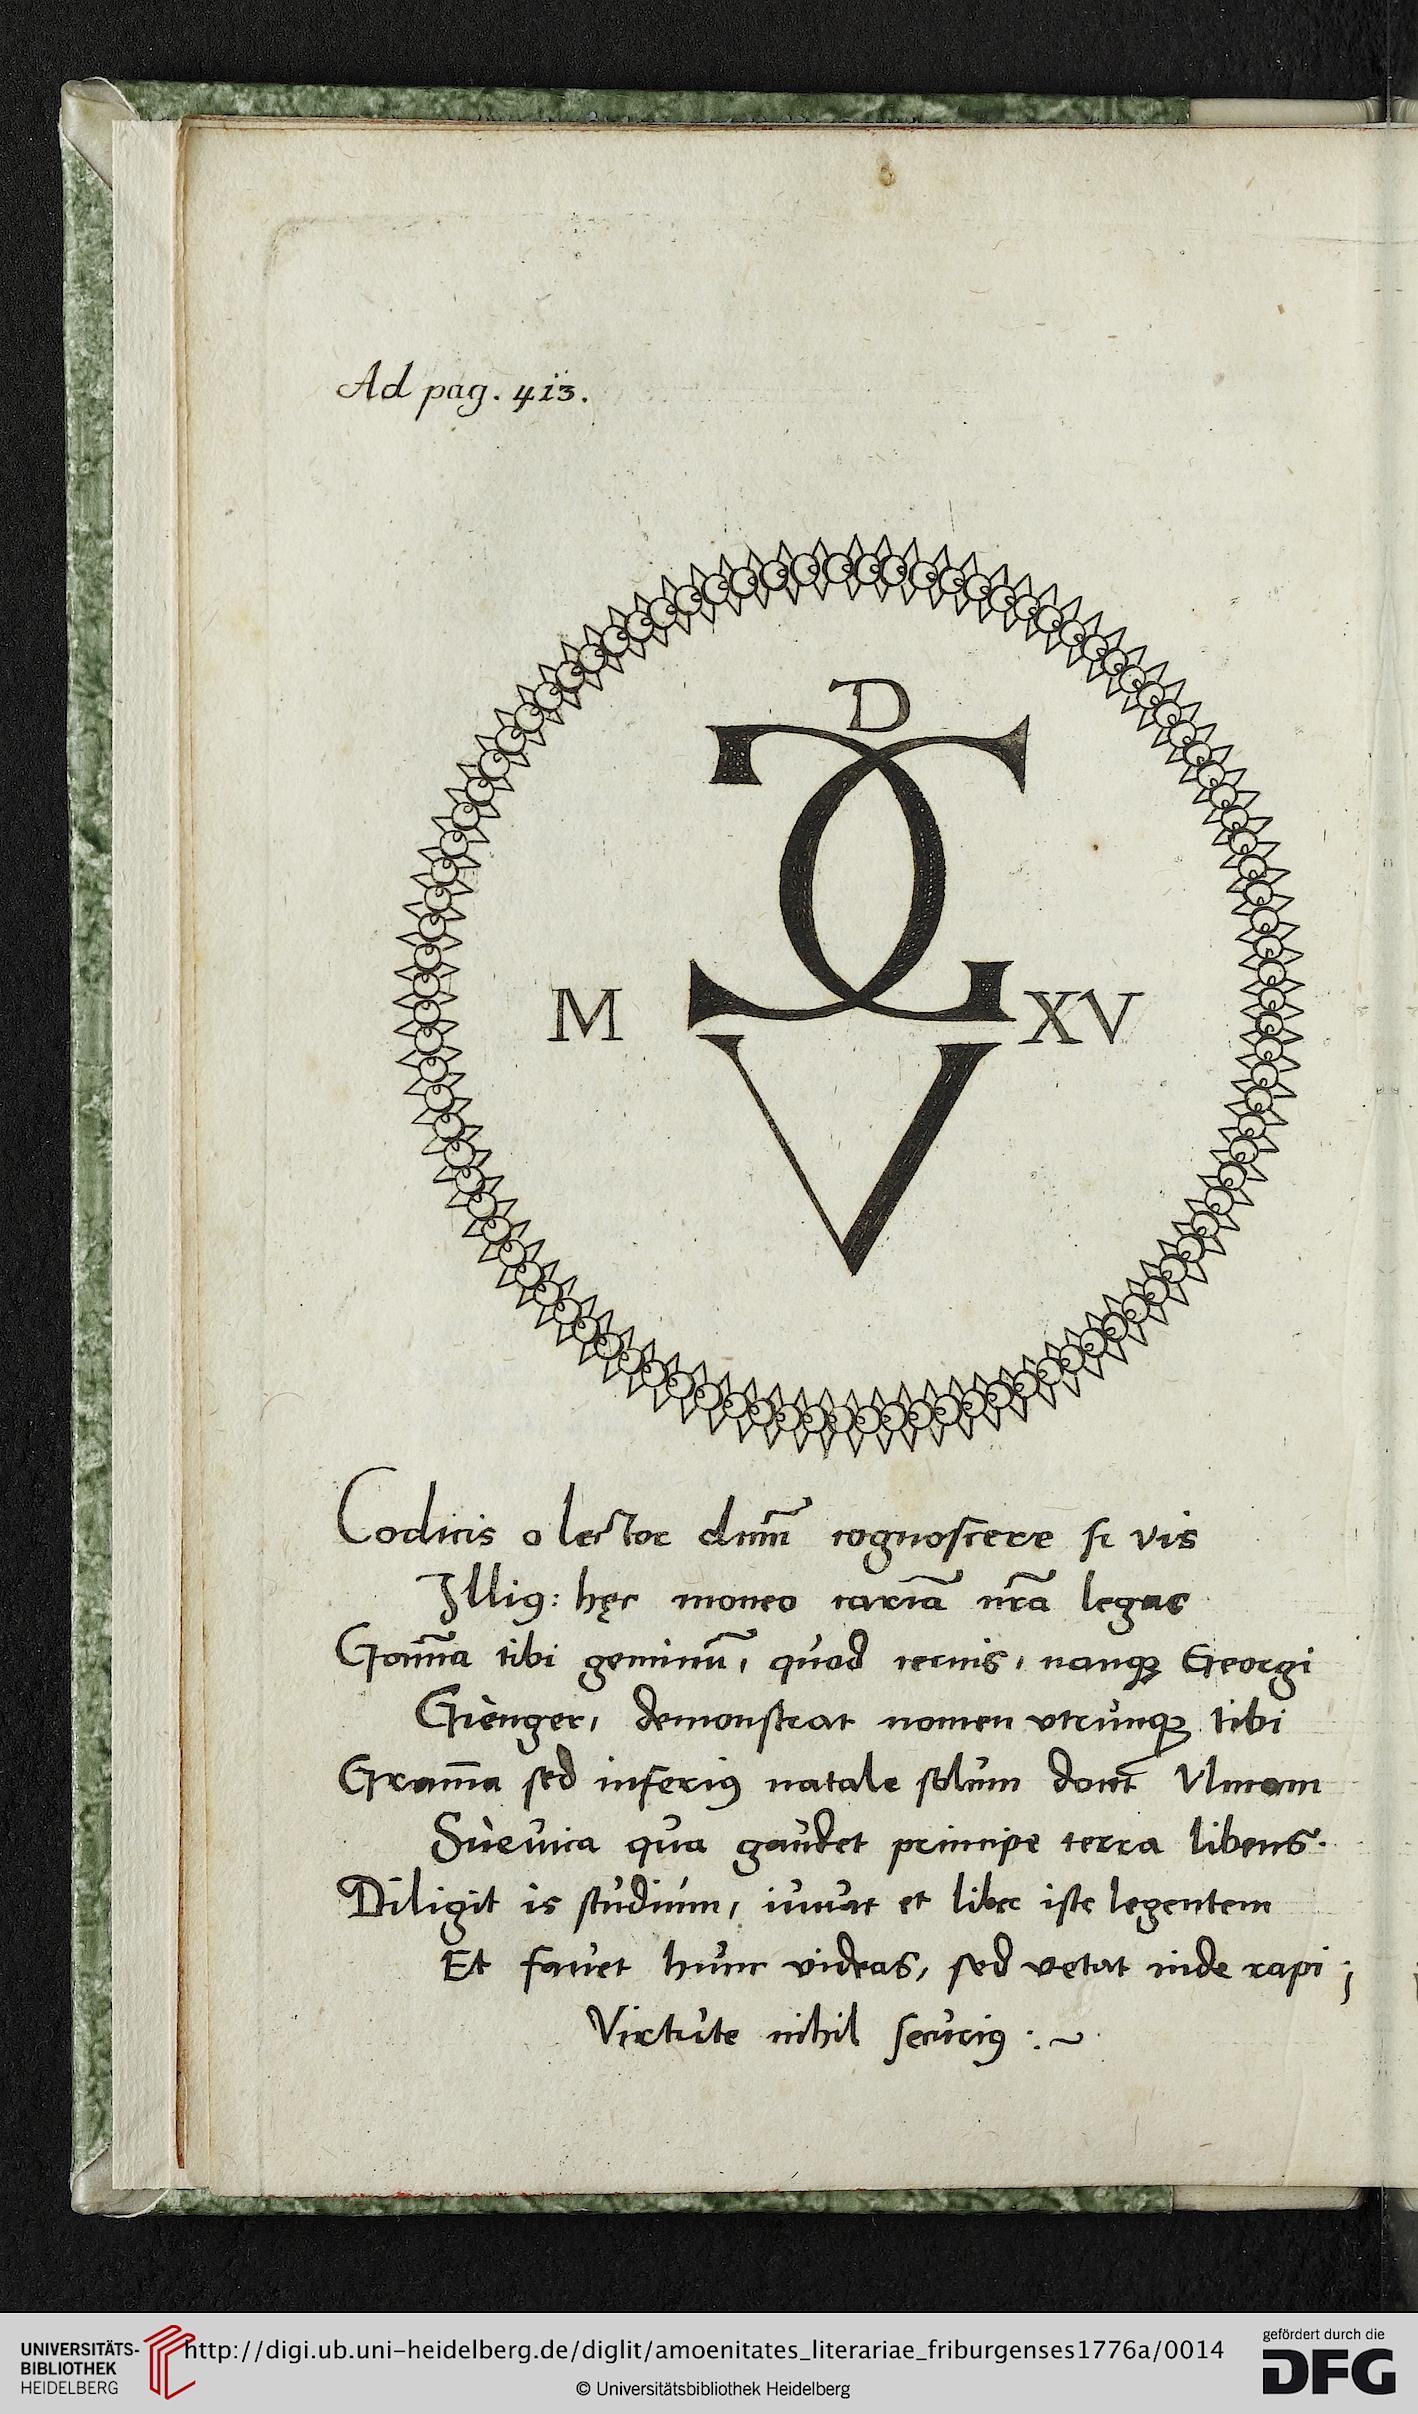 Ad pag. 413.
D
G G
M XV
V
Codicis o lector dnm̃ cognoscere si vis
Illiꝯ: hęc moneo carĩa nr̃a legas
Gam̃a tibi geminũ, quod cernis, nanqꝫ Georgi
Giènger, demonstrat nomen vtrunqꝫ tibi
Gram̃a sed inferiꝯ natale solum docet Vlmam
Sueuica qua gaudet principe terra libens.
Diligit is studium, iuuat et liber iste legentem
Et fauet hunc videas, sed vetat inde rapi;
Virtute nihil securiꝯ :~
UNIVERSITÄTS-
BIBLIOTHEK
HEIDELBERG
http://digi.ub.uni-heidelberg.de/diglit/amoenitates_literariae_friburgenses1776a/0014
© Universitätsbibliothek Heidelberg
gefördert durch die
DFG